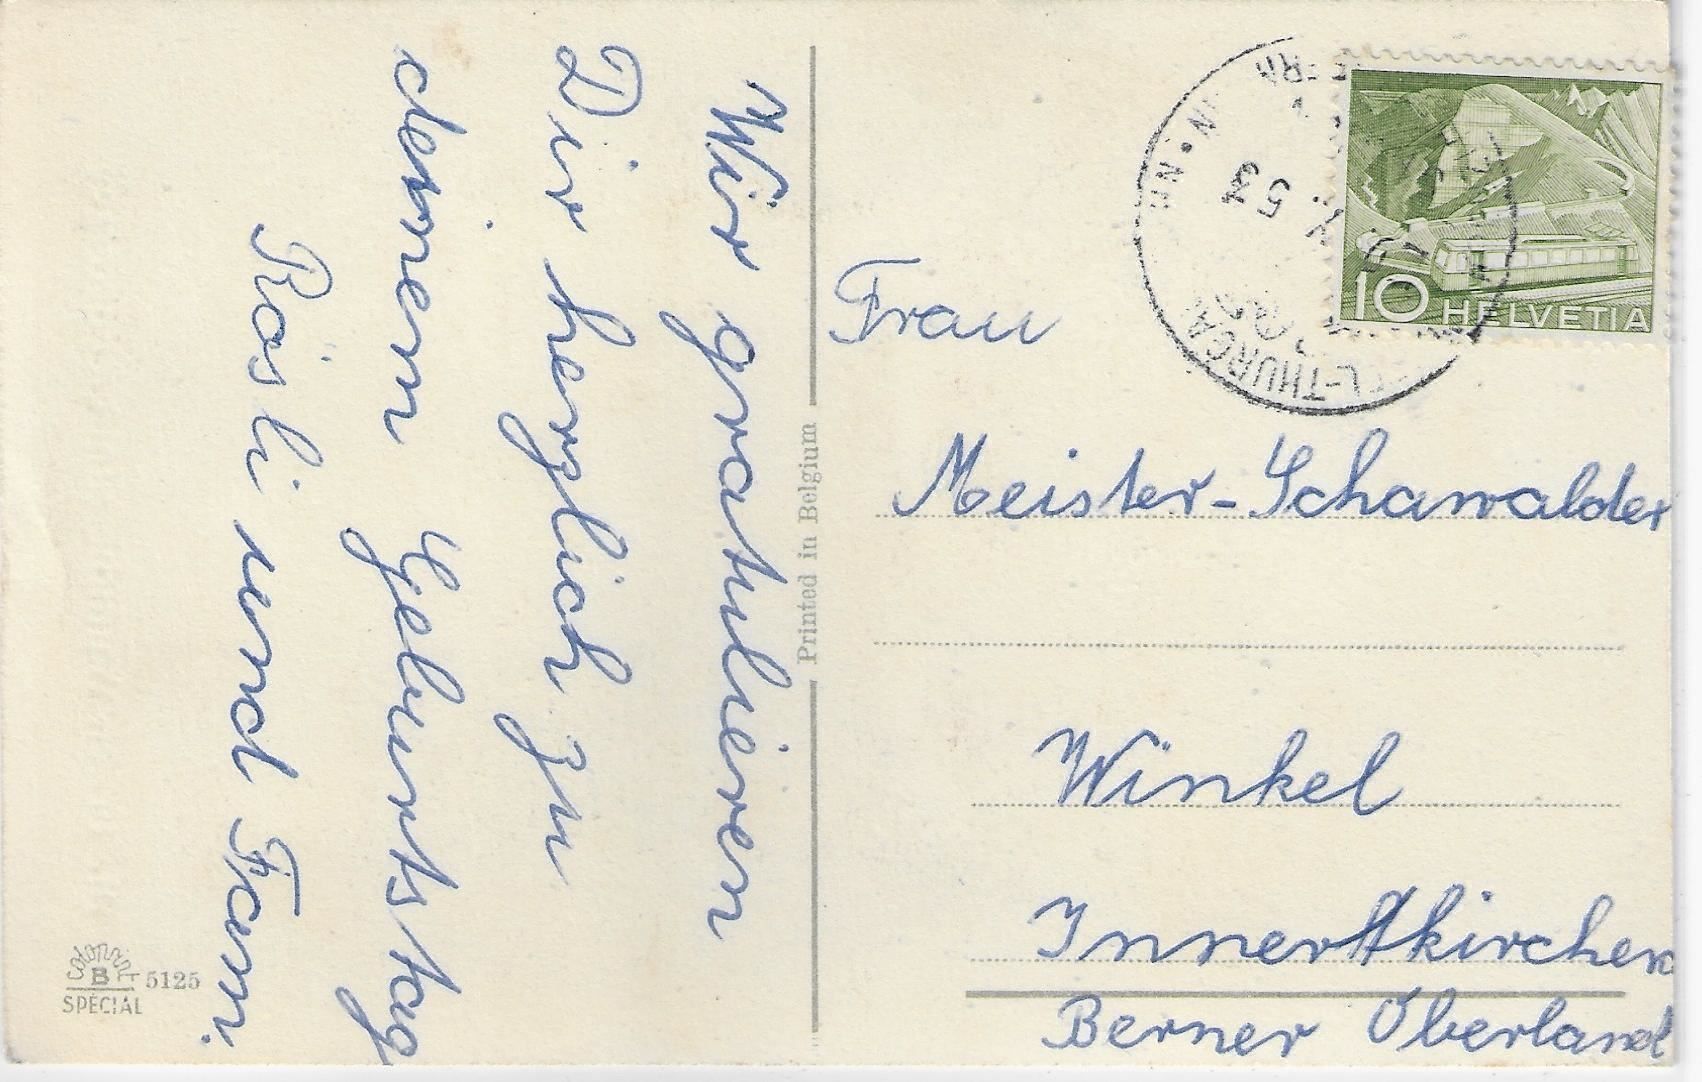 Wir gratulieren
Dir herzlich zu
deinem Geburtstag
Rösli und Fam.
Printed in Belgium
colorprint
B 5125
SPÉCIAL
53
10 HELVETIA
Frau
Meister-Schawalder
Winkel
Innertkirchen
Berner Oberland